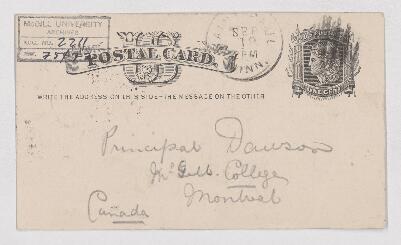 McGILL UNIVERSITY
ARCHIVES
ACC. NO. 2211
REF.
SEP
10
PM
MINN.
POSTAL CARD.
ONE CENT
WRITE THE ADDRESS ON THIS SIDE - THE MESSAGE ON THE OTHER
Principal Dawson
McGill College
Montreal
Canada